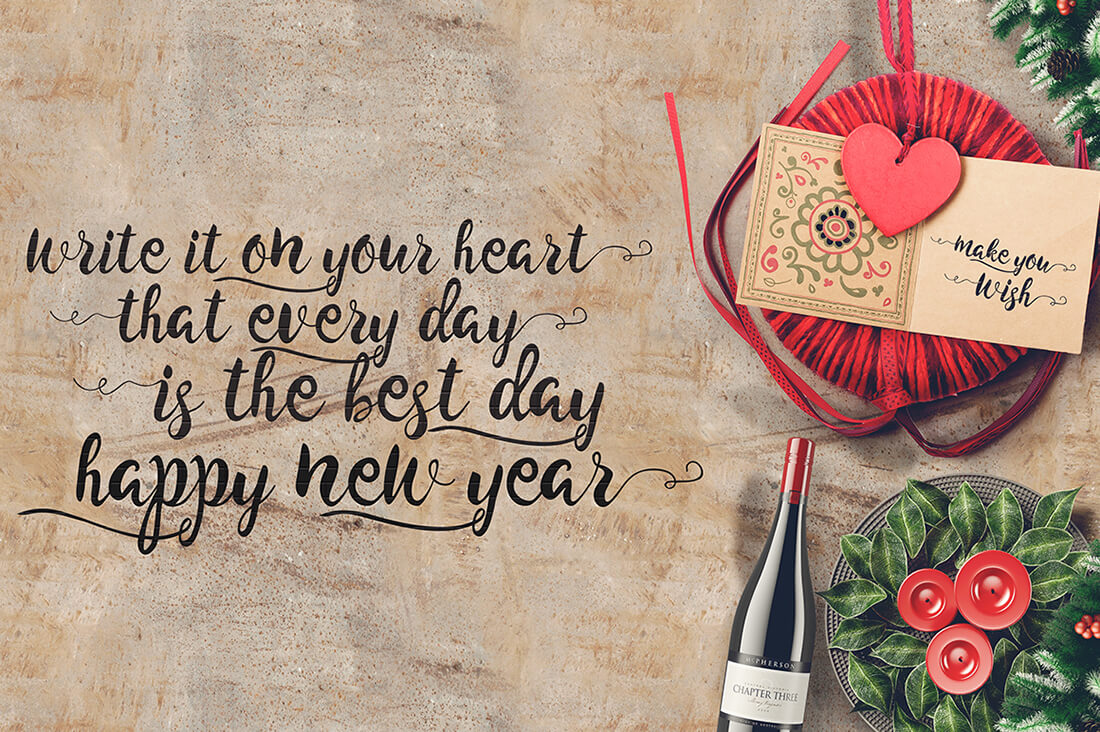 write it on your heart
that every day
is the best day
happy new year
make you
wish
McPHERSON
CHAPTER THREE